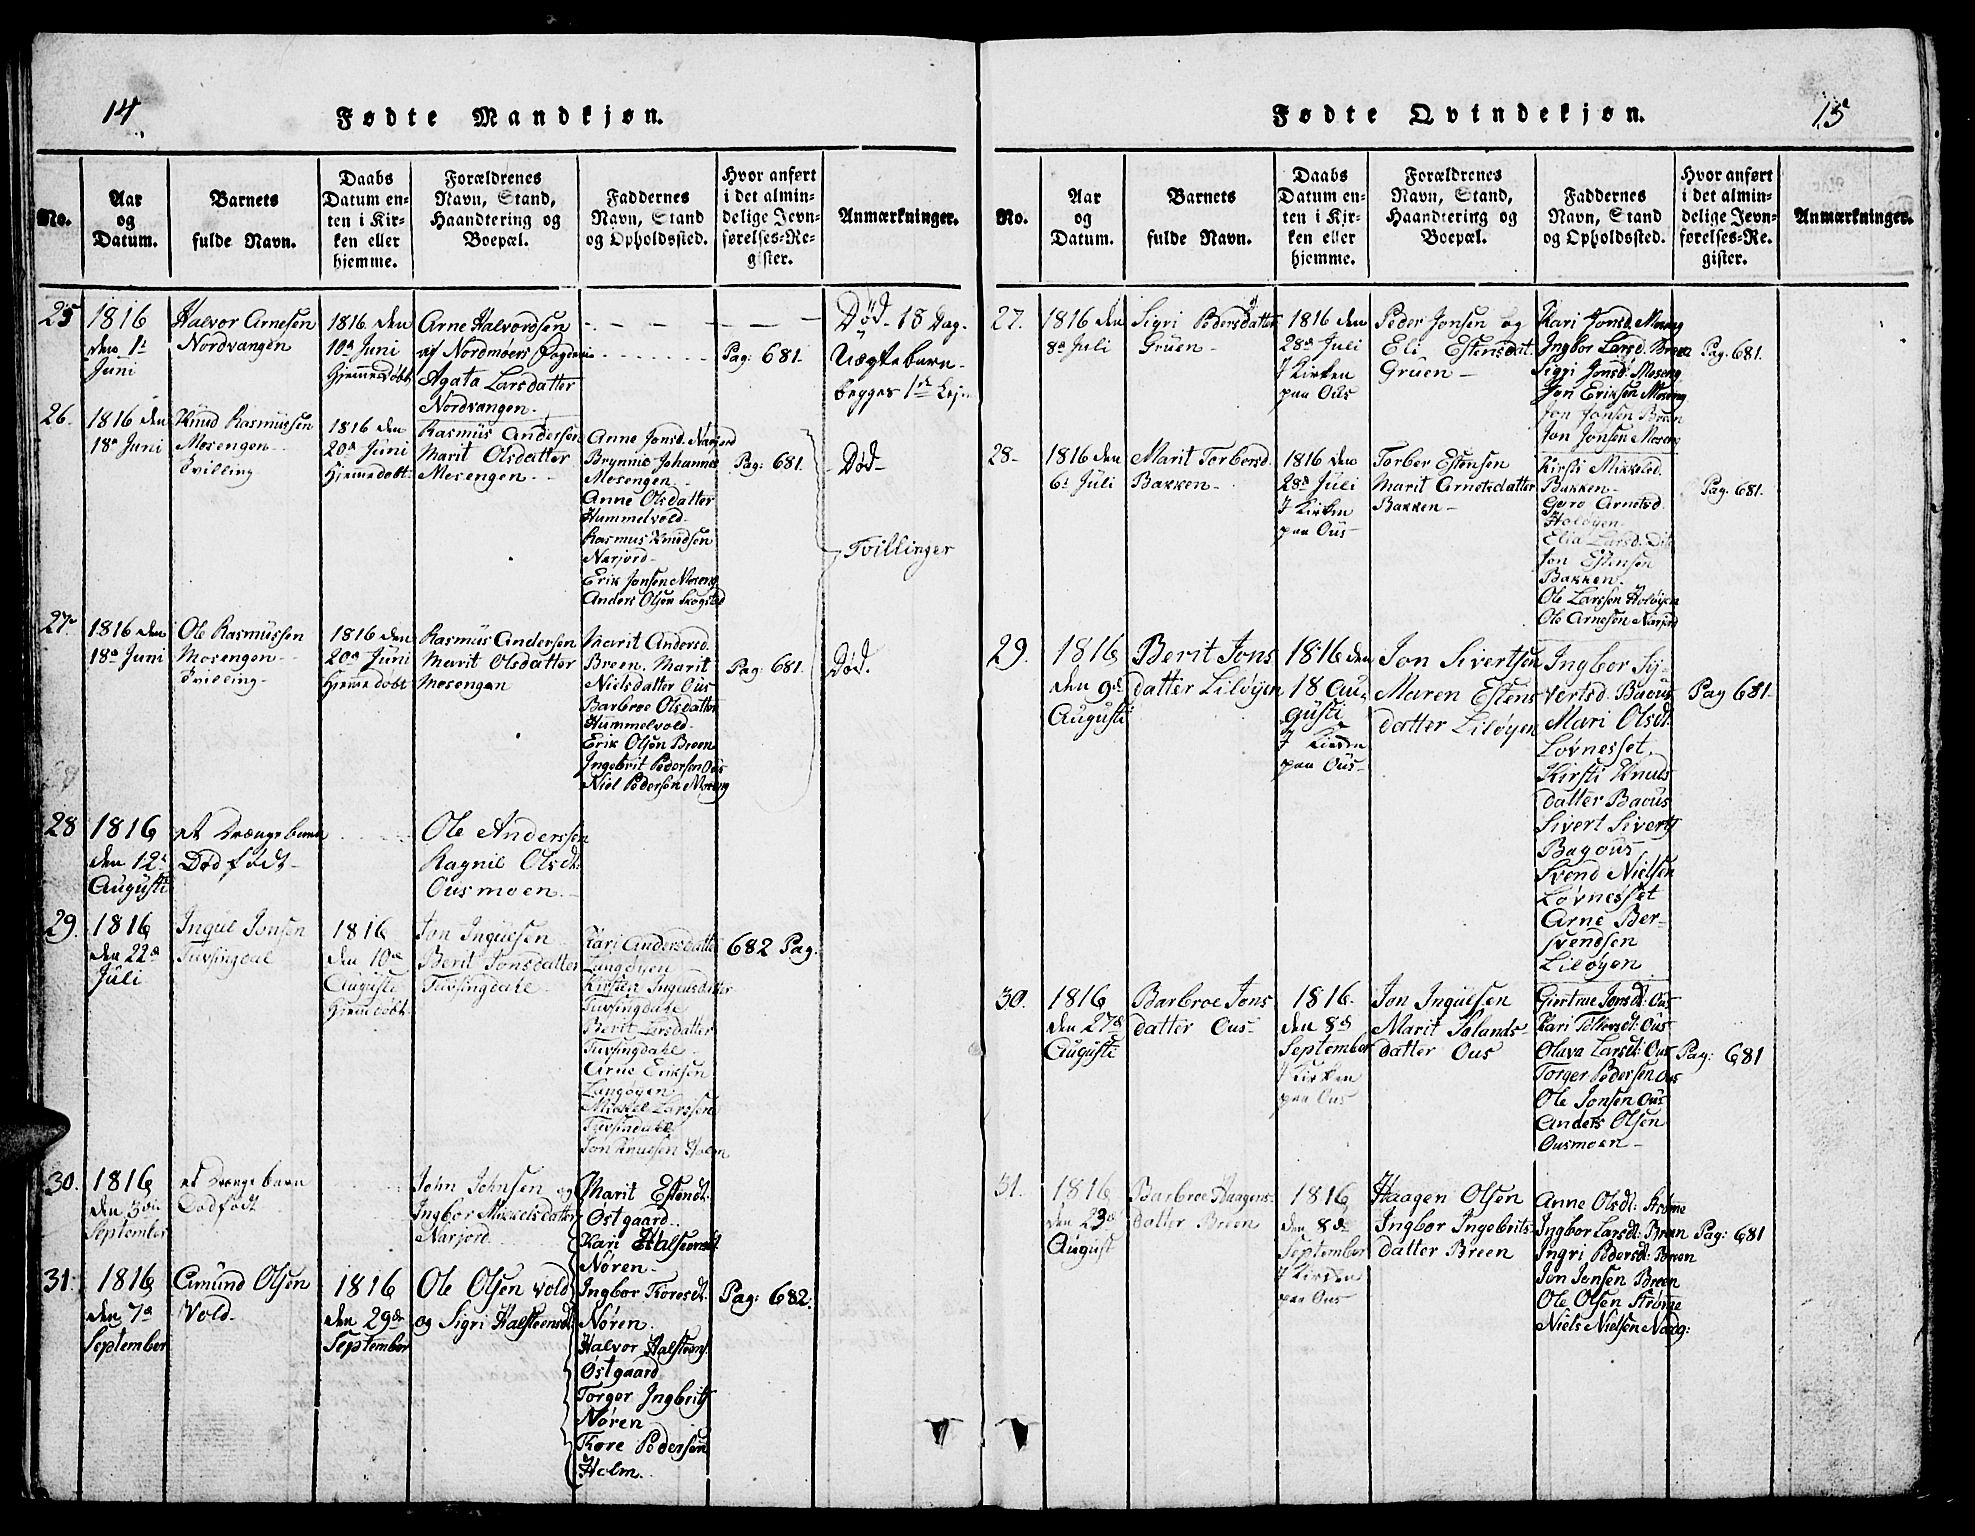 14
Fødte Mandkjøn.
No.
Aar
og
Datum.
Barnets
fulde Navn.
Daabs
Datum en-
ten i Kir-
ken eller
hjemme.
Forældrenes
Navn, Stand,
Haandtering og
Boepæl.
Faddernes
Navn, Stand
og Opholdssted.
Hvor anført
i det almin-
delige Jevn-
førelses-Re-
gister.
Anmærkninger.
25
1816
den 1t
Juni
Halvor Arnesen
Nordvangen
1816 den
10de Juni
Hjemmedøbt
Arne Halvordsen
af Nordmøers
Agata Larsdatter
Nordvangen.
Pag: 681.
Død. 18 Dag.
Uægte barn
begges 1ste
26.
1816 den
18de Juni
Knud Rasmussen
Mosengen
Tvilling
1816 den
20de Juni
Hjemmedøbt
Rasmus Andersen
Marit Olsdatter
Mosengen
Anne Jonsd. Narjord
Brynnie Johannes
Mosengen
Anne Olsdatter
Hummelvold
Rasmus Knudsen
Narjord
Erik Jonsen Moseng
Anders Olsen Skogstad
Pag: 681.
Død
Tvillinger
27
1816 den
18de Juni
Ole Rasmussen
Mosengen
Tvilling
1816 den
20de Juni
Hjemmedøbt
Rasmus Andersen
Marit Olsdatter
Mosengen
Marit Andersd.
Breen. Marit
Nielsdatter Ous
Barbroe Olsdatter
Hummelvold
Erik Olsen Breen
Ingebrit Pedersen Ous
Niel Pedersen Moseng
Pag: 681.
Død.
28
1816
den 12te
Augusti
et Drænge barn
Død født
Ole Anderssen
Ragnil Olsdt:
Ousmoen.
29.
1816
den 22de
Juli
Ingul Jonsen
Tuvsingdal
1816
den 10de
Augusti
Hjemdøbt
Jon Ingulsen
Berit Jonsdatter
Tuvsingdale
Kari Andersdatter
Langøyen
Kirsten Ingulsdatter
Tuvsingdale
Berit Larsdatter
Tuvsingdale
Arne Eriksen
Langøyen
Mikkel Larssen
Tuvsindale
Jon Knudsen Holm
682 Pag.
30.
1816
den 3die
September
et Drænge barn
Dødfødt
John Johnsen og
Ingbor Mickelsdatter
Narjord
31.
1816
den 7de
September
Amund Olsen
Vold
1816
den 29de
September
Ole Olsen Vold
og Sigri Halsteensdt:
Marit Estendt:
Østgaard
Kari Halsteensdt.
Nören
Ingbor Toresdt.
Nören
Halvor Halsteens.
Østgaard
Torger Ingbrits
Nören
Tore Pedersen
Holm.
Pag: 682.
15
Fødte Qvindekjøn.
No.
Aar
og
Datum.
Barnets
fulde Navn.
Daabs
Datum en-
ten i Kir-
ken eller
hjemme.
Forældrenes
Navn, Stand,
Haandtering og
Boepæl.
Faddernes
Navn, Stand
og Opholdssted.
Hvor anført
i det almin-
delige Jevn-
førelses-Re-
gister.
Anmærkninger.
27.
1816 den
8de Juli
Sigri Pedersdatter
Gruen
1816 den
28de Juli
I Kirken
paa Ous
Peder Jonsen og
Eli Estensdat.
Gruen
Kari Jonsd. Moseng
Ingbor Larsd. Breen
Sigri Jonsd: Moseng
Jon Eriksen Moseng
Jon Jonsen Breen
Jon Jonsen Moseng
Pag. 681.
28
1816 den
6t Juli
Marit Torbersd.
Bakken
1816 den
28de Juli
I Kirken
paa Ous
Torber Estensen
Marit Arnetsdatter
Bakken
Kirsti Mikkelsd.
Bakken
Goro Arnetsd.
Holøyen
Elia Larsd: Dito
Jon Estensen
Bakken.
Ole Larssen Holøyen
Ole Arnesen Narjord
Pag. 681.
29.
1816
den 9de
Augusti
Berit Jons
datter Liløyen
1816 den
18 Au-
gusti
I Kirken
paa Ous
Jon Sivertsen
Maren Estens
datter Liløyen
Ingbor Sy-
vertsd. Bagus
Mari Olsdt:
Løvnesset.
Kirsti Knuds
datter Bagus
Sivert Siverts
Bagous
Svend Nielsen
Løvnesset
Arne Ber-
svenssen
Liløyen
Pag 681.
30.
1816
den 27de
Augusti
Barbroe Jons
datter Ous
1816.
den 8de
September
I Kirken
paa Ous
Jon Ingulsen
Marit Salands-
datter Ous
Giertrue Jonsdt: Ous
Kari Tollevsdt: Ous
Olava Larsdt: Ous
Torger Pedersen Ous
Ole Jonsen Ous
Anders Olsen
Ousmoen
Pag: 681
31.
1816
den 23de
August
Barbroe Haagens-
datter Breen
1816
den 8de
September
I Kirken
paa Ous
Haagen Olsen
Ingbor Ingebrits-
datter Breen
Anne Olsdt: Strømme
Ingbor Larsdt: Breen
Ingri Pedersdt: Breen
Jon Jensen Breen
Ole Olsen Strømme
Niels Nielsen Nordg:
Pag: 681